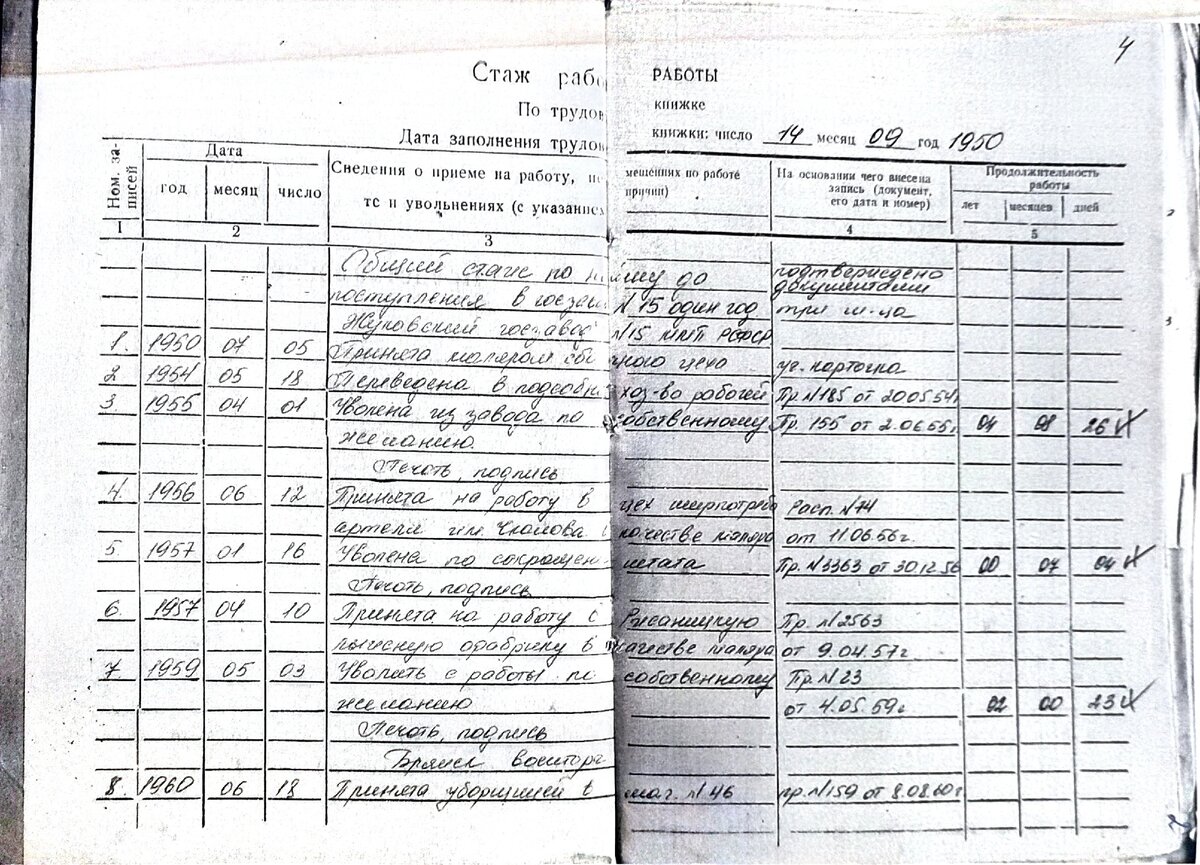 4
Стаж рабо РАБОТЫ
По трудов книжке
Дата заполнения трудов книжки: число 14 месяц 09 год 1950
Ном. записей Дата Сведения о приеме на работу, пе мещениях по работе На основании чего внесена Продолжительность
год месяц число тс и увольнениях (с указание причин) запись (документ, работы
его дата и номер) лет месяцев дней
1 2 3 4 5
Общий стаж по найму до подтверждено
документами
поступления в госзавод N 15 один год три м-ца
Жуковский госзавод N15 ММП РСФСР
1. 1950 07 05 Принята маляром сбо ного цеха уч. карточка
2 1954 05 18 Переведена в подсобн. хоз-во рабочей Пр N185 от 20.05.54г
3. 1955 04 01 Уволена из завода по собственному Пр. 155 от 2.06.55г. 04 08 26
желанию.
Печать, подпись
4. 1956 06 12 Принята на работу в цех ширпотреба Расп. N74
артели им. Чкалова в качестве маляра от 11.06.56г.
5 1957 01 16 Уволена по сокращен. штата Пр. N3363 от 30.12.56 00 07 04
Печать, подпись
6. 1957 04 10 Принята на работу с Пр. N2563
фабрику в качестве маляра от 9.04.57г
7 1959 05 03 Уволить с работы по собственному Пр N 23
желанию от 4.05.59г. 02 00 23
Печать, подпись
Брянск военторг
8. 1960 06 18 Принята уборщицей в маг. N 46 пр. N159 от 8.08.60г